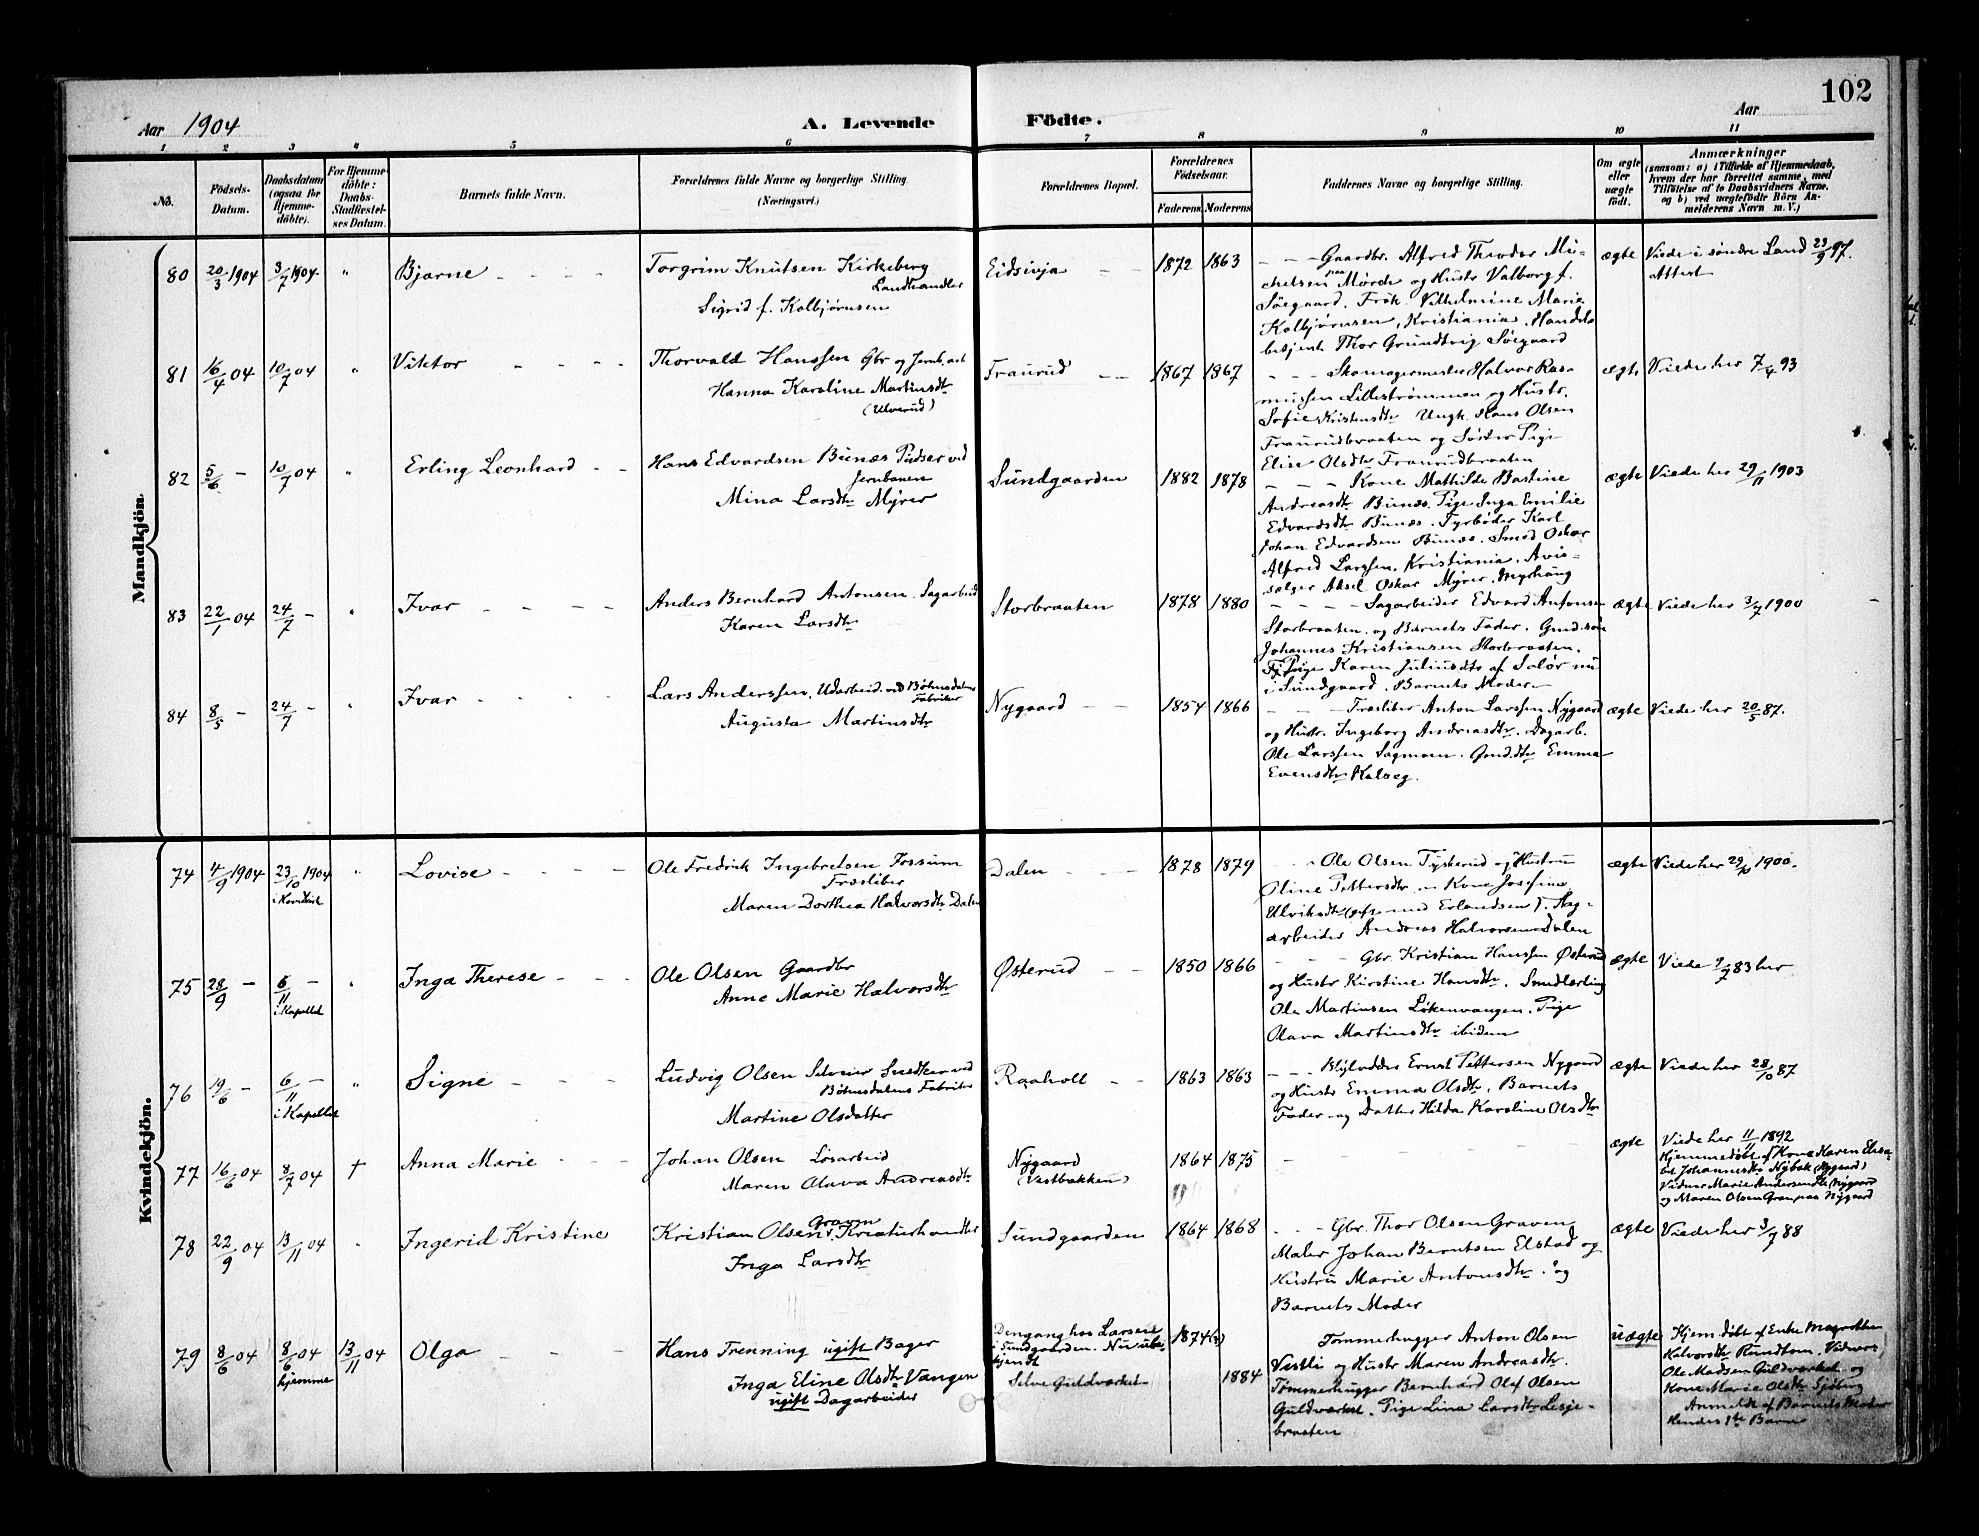 102
Aar 1904
A. Levende
Födte.
Aar
1 2 3 4 5 6 7 8 9 10 11
No.
Födsels-
Datum.
Daabsdatum
(ogsaa for
Hjemme-
döbte).
For Hjemme-
döbte:
Daabs-
Stadfæstel-
ses Datum.
Barnets fulde Navn.
Forældrenes fulde Navne og borgerlige Stilling.
(Næringsvei.)
Forældrenes Bopæl.
Forældrenes
Födselsaar.
Faderens Moderens
Faddernes Navne og borgerlige Stilling.
Om ægte
eller
uægte
födt.
Anmærkninger
(saasom: a) i Tilfælde af Hjemmedaab,
hvem der har forrettet samme, med
Tilföielse af to Daabsvidners Navne.
og b) ved uægtefödte Börn An-
melderens Navn m. V.)
Mandkjön.
80 20/3 1904 3/7 1904 " Bjarne
Torgrim Knutsen Kirkeberg
Landhandler
Sigrid f. Kolbjørnsen
Eidsivja 1872 1863
Gaardbr. Alfred Theodor Mi-
chelsen Mørde og Hustr Valborg f.
Søegaard. Frøk. Vilhelmine Marie
Kolbjørnsen, Kristiania. Handels
betjent Thor Grundtvig Søegaard
ægte Viede i søndre Land 23/9 97.
Attest
81 16/4 04 10/7 04 " Viktor
Thorvald Hanssen Gbr og Jernb.arb
Hanna Karoline Martinsdtr
(Ulverud)
Traurud 1867 1867
Skomagermester Halvor Ras-
mussen Lillestrømmen og Hustr.
Sofie Kristensdtr Ungk. Hans Olsen
Traurudbraaten og Søster Pige
Elise Olsdtr Traurudbraaten
ægte Viede her 7/4 93
82 5/6 - 10/7 04 " Erling Leonhard
Hans Edvardsen Bunæs Pudser ved
Jernbanen
Mina Larsdtr Myrer
Sundgaarden 1882 1878
Kone Mathilde Bastine
Andreasdtr Bunæs. Pige Inga Emilie
Edvardsdtr Bunæs. Fyrbøder Karl
Johan Edvardsen Bunæs. Smed Oskar
Alfred Larssen, Kristiania. Avis-
sælger Aksel Oskar Myrer. Myrhaug
ægte Viede her 29/11 1903
83 22/1 04 24/7 - " Ivar
Anders Bernhard Antonsen. Sagarbeid
Karen Larsdtr
Storbraaten 1878 1880
Sagarbeider Edvard Antonsen
Storbraaten. og Barnets Fader. Gmd.søn
Johannes Kristiansen Storbraaten.
Pige Karen Juliusdtr af Solør nu
i Sundgaard. Barnets Moder
ægte Viede her 3/7 1900
84 8/5 - 24/7 - " Ivar
Lars Anderssen. Udarbeid. ved Bøhnsdalens
Fabriker
Augusta Martinsdtr
Nygaard 1854 1866
Træsliber Anton Larssen Nygaard
og Hustr. Ingeborg Andreasdtr. Dagarb.
Ole Larssen Sagmoen. Gmd.dtr Emma
Evensdtr Kalveg.
ægte Viede her 20/5 87.
Kvindekjön.
74 4/9 1904 23/10 1904 " Lovise
Ole Fredrik Ingebretsen Fossum
Træsliber
Maren Dorthea Halvorsdtr Dalen
Dalen 1878 1879
Ole Olsen Tysterud og Hustru
Oline Pettersdtr. Kone Josefine
Ulriksdtr (gift med Erlandsen). Sag-
arbeider Andreas Halvorsen Dalen
ægte Viede her 1900.
75 28/9 - 6/11 - " Inga Therese
i Kapellet
Ole Olsen Gaardbr
Anne Marie Halvorsdtr
Østerud 1850 1866
Gbr Kristian Hanssen Østerud
og Hustr Kirstine Hansdtr. Smedlærling
Ole Martinsen Løkenvangen. Pige
Olava Martinsdtr ibidem
ægte Viede 83 her
76 19/6 - 6/11 - " Signe
i Kapellet
Ludvig Olsen Selveier Snedker ved
Bøhnsdalens Fabriker
Martine Olsdatter
Raaholt 1863 1863
Ernst Pettersen Nygaard
og Hustr Emma Olsdtr, Barnets
Fader og Datter Hilda Karoline Olsdtr
ægte Viede her 28/10 87
77 16/6 04 8/7 04 † Anna Marie
Johan Olsen Løsarbeid
Maren Olava Andreasdtr
Nygaard
(Vestbakken)
1864 1875
ægte
Viede her 11/11 1892
Hjemmedøbt af Kone Karen Elisa-
bet Johannesdtr Nybak (Nygaard)
Vidner Marie Andersen (Nygaard
og Maren Olsen Gran paa Nygaard
78 22/9 04 13/11 04 " Ingerid Kristine
Kristian Olsen Graven Kreaturhandler
Inga Larsdtr
Sundgaarden 1864 1868
Gbr. Thor Olsen Graven
Maler Johan Berntsen Elstad og
Hustru Marie Antonsdtr. og
Barnets Moder
ægte Viede her 3/7 88
79 8/6 04 8/6 04 13/11 04 Olga
hjemme
Hans Trenning ugift Bager
Inga Eline Olsdtr Vangen
ugift Dagarbeider
Dengang hos Larsen
i Sundgaarden. Nu ube-
kjendt
Selve Guldværket
1874(?)
1884
Tømmerhugger Anton Olsen
Vestli og Hustr Maren Andreasdtr.
Tømmerhugger Bernhard Olaf Olsen
Guldværket. Pige Lina Larsdtr Lesje-
braaten
uægte
Hjem.døbt af Enke Magrethe
Halvorsdtr Rundtom. Vidner
Ole Madsen Guldværket og
Kone Marie Olsdtr Sjøberg
Anmeldt af Barnets Moder
Hendes 1ste Barn